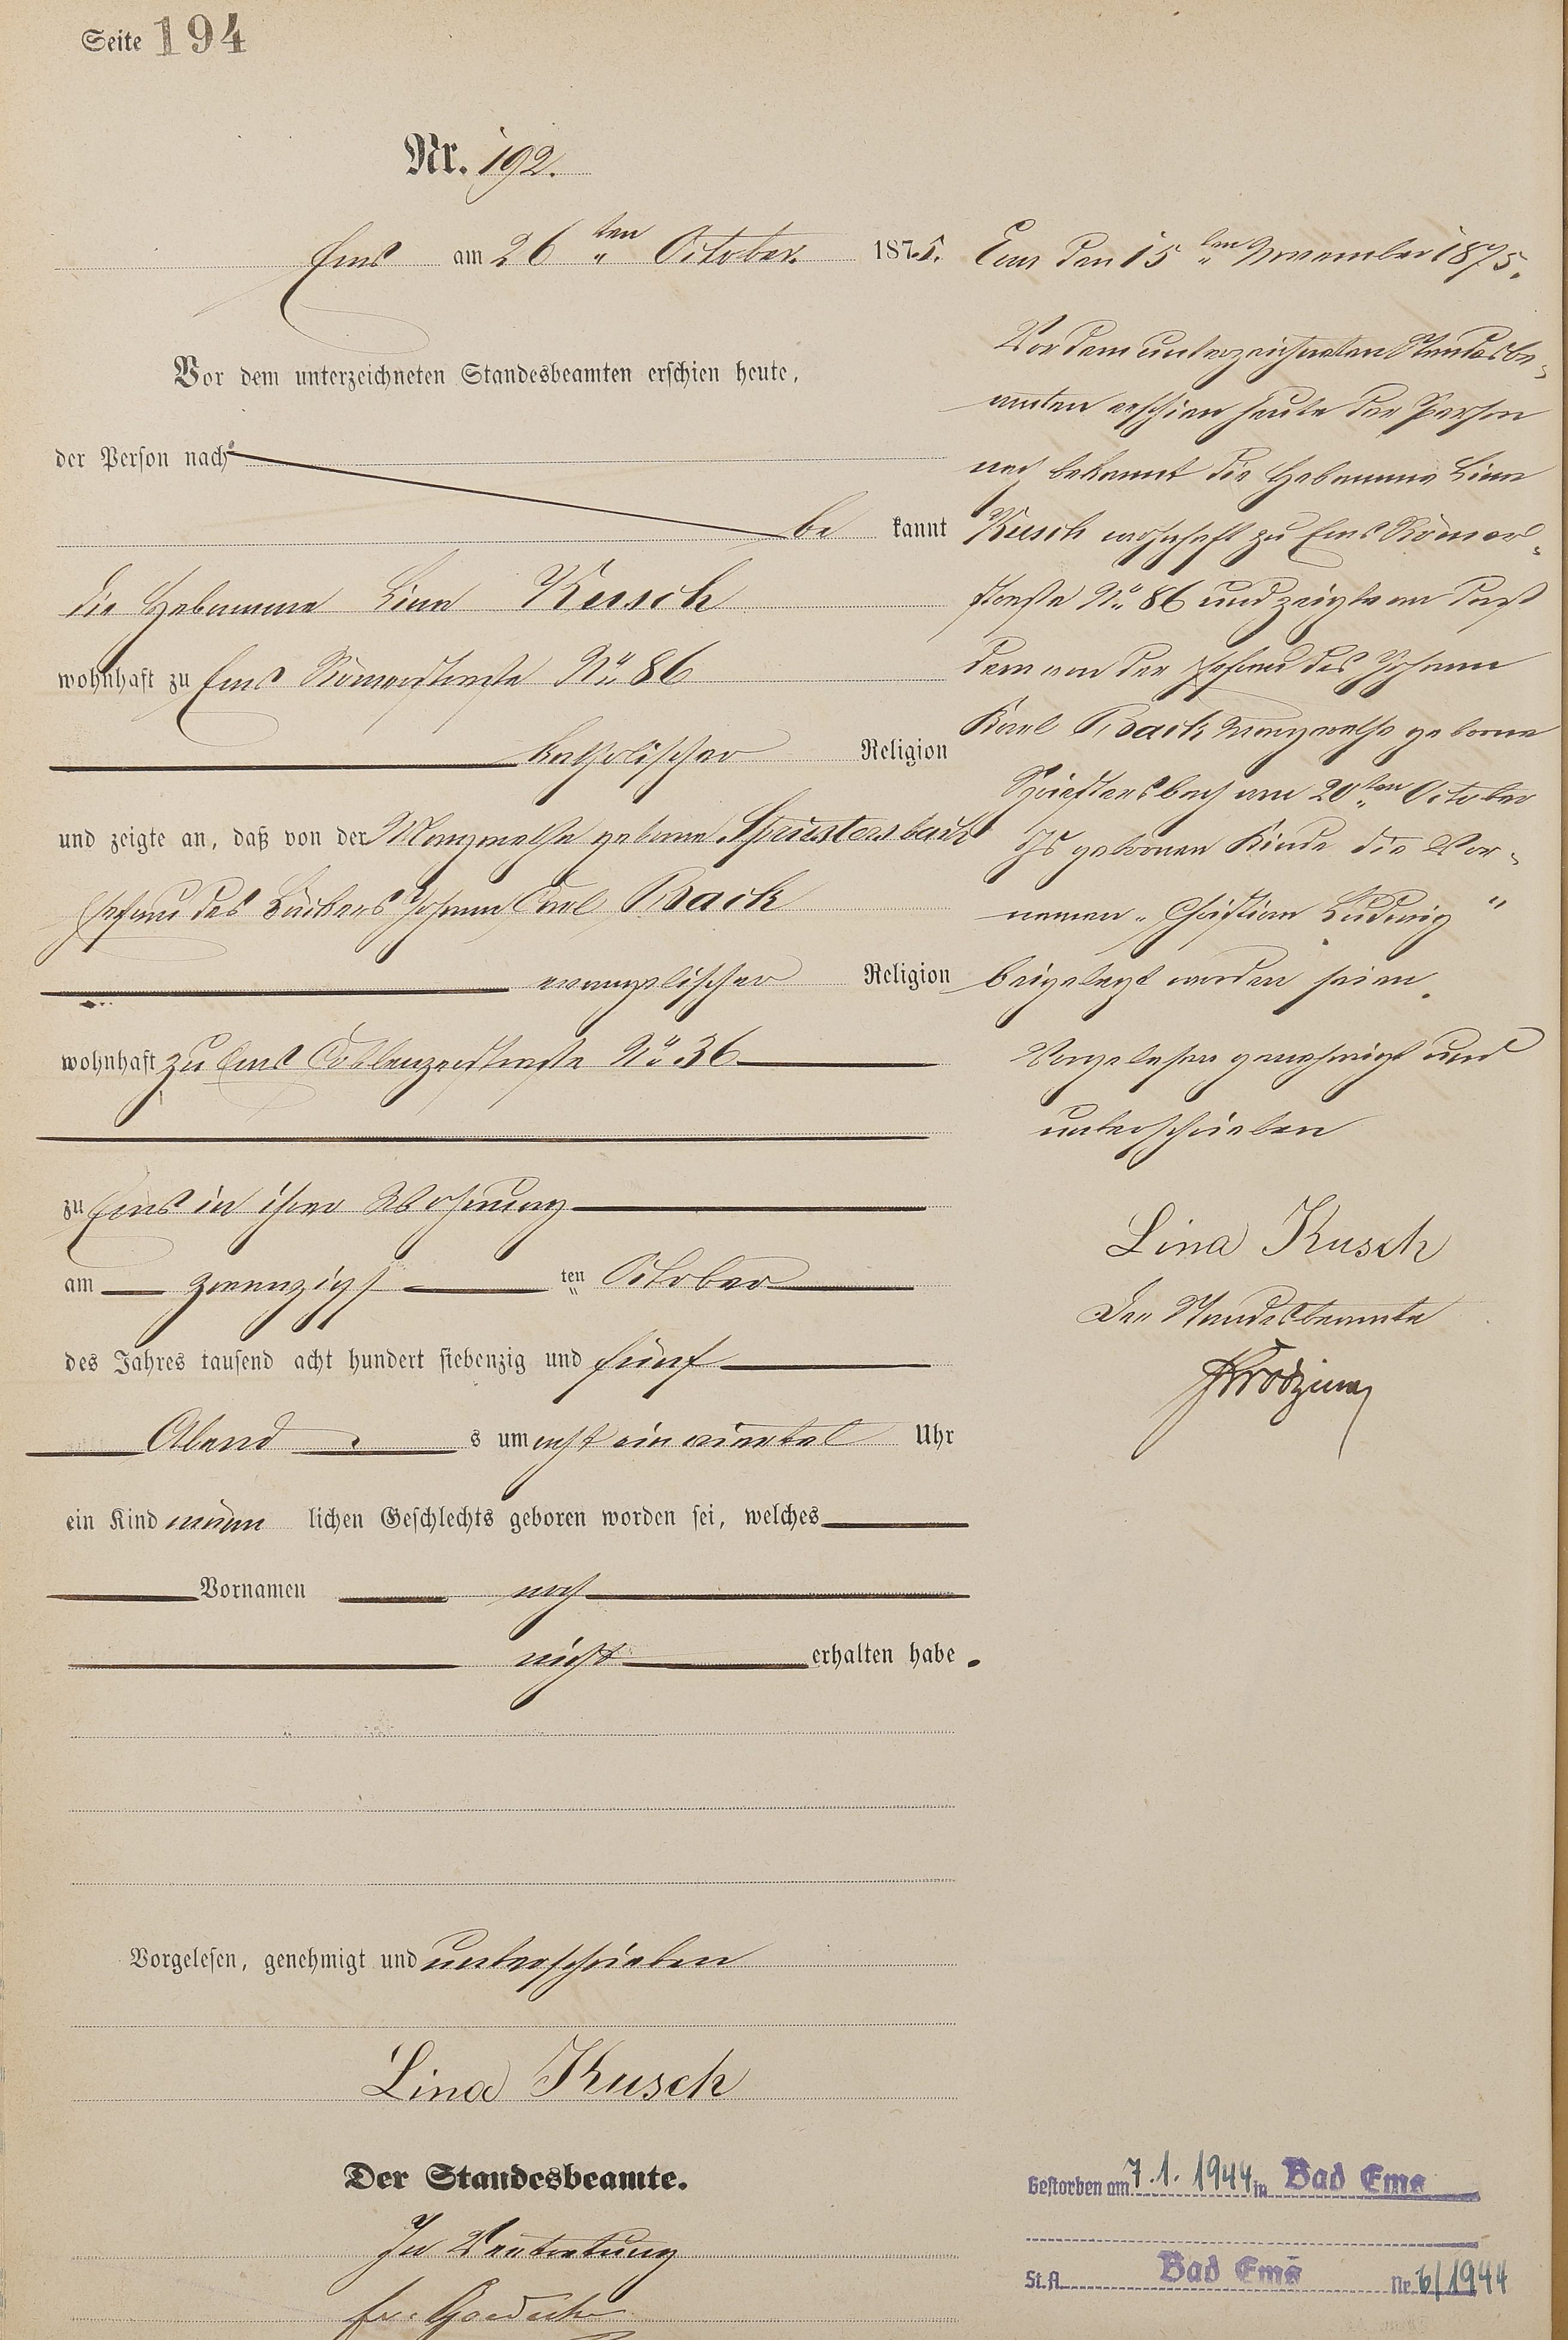 Seite 194
Nr. 192.
Ems am 26 ten October 1875.
Vor dem unterzeichneten Standesbeamten erschien heute,
der Person nach
be kannt
die Hebamme Lina Kusch
wohnhaft zu Ems Römerstraße No 86
katholischer Religion
und zeigte an, daß von der geborne
Ehefrau des Bäckers Johann Carl Back
evangelischer Religion
wohnhaft zu Ems Coblenzerstraße No 36
zu Ems in ihrer Wohnung
am zwanzigsten October
des Jahres tausend acht hundert siebenzig und fünf
Abend s um acht ein viertel Uhr
ein Kind männ lichen Geschlechts geboren worden sei, welches
Vornamen noch
nicht erhalten habe.
Vorgelesen, genehmigt und unterschrieben
Lina Kusch
Der Standesbeamte.
In Vertretung
Ems den 15 ten November 1875.
Vor dem unterzeichneten Standesbe-
amten erschien heute der Person
nach bekannt die Hebamme Lina
Kusch wohnhaft zu Ems Römer-
straße No 86 und zeigte an daß
dem von der Ehefrau des Johann
Karl Back geborne
am 20 ten October
Js geborenen Kinde die Vor-
namen „Christian Ludwig"
beigelegt worden seien.
Vorgelesen genehmigt und
unterschrieben
Lina Kusch
Der Standesbeamte
Gestorben am 7.1.1944 in Bad Ems
St.A. Bad Ems Nr. 6/1944